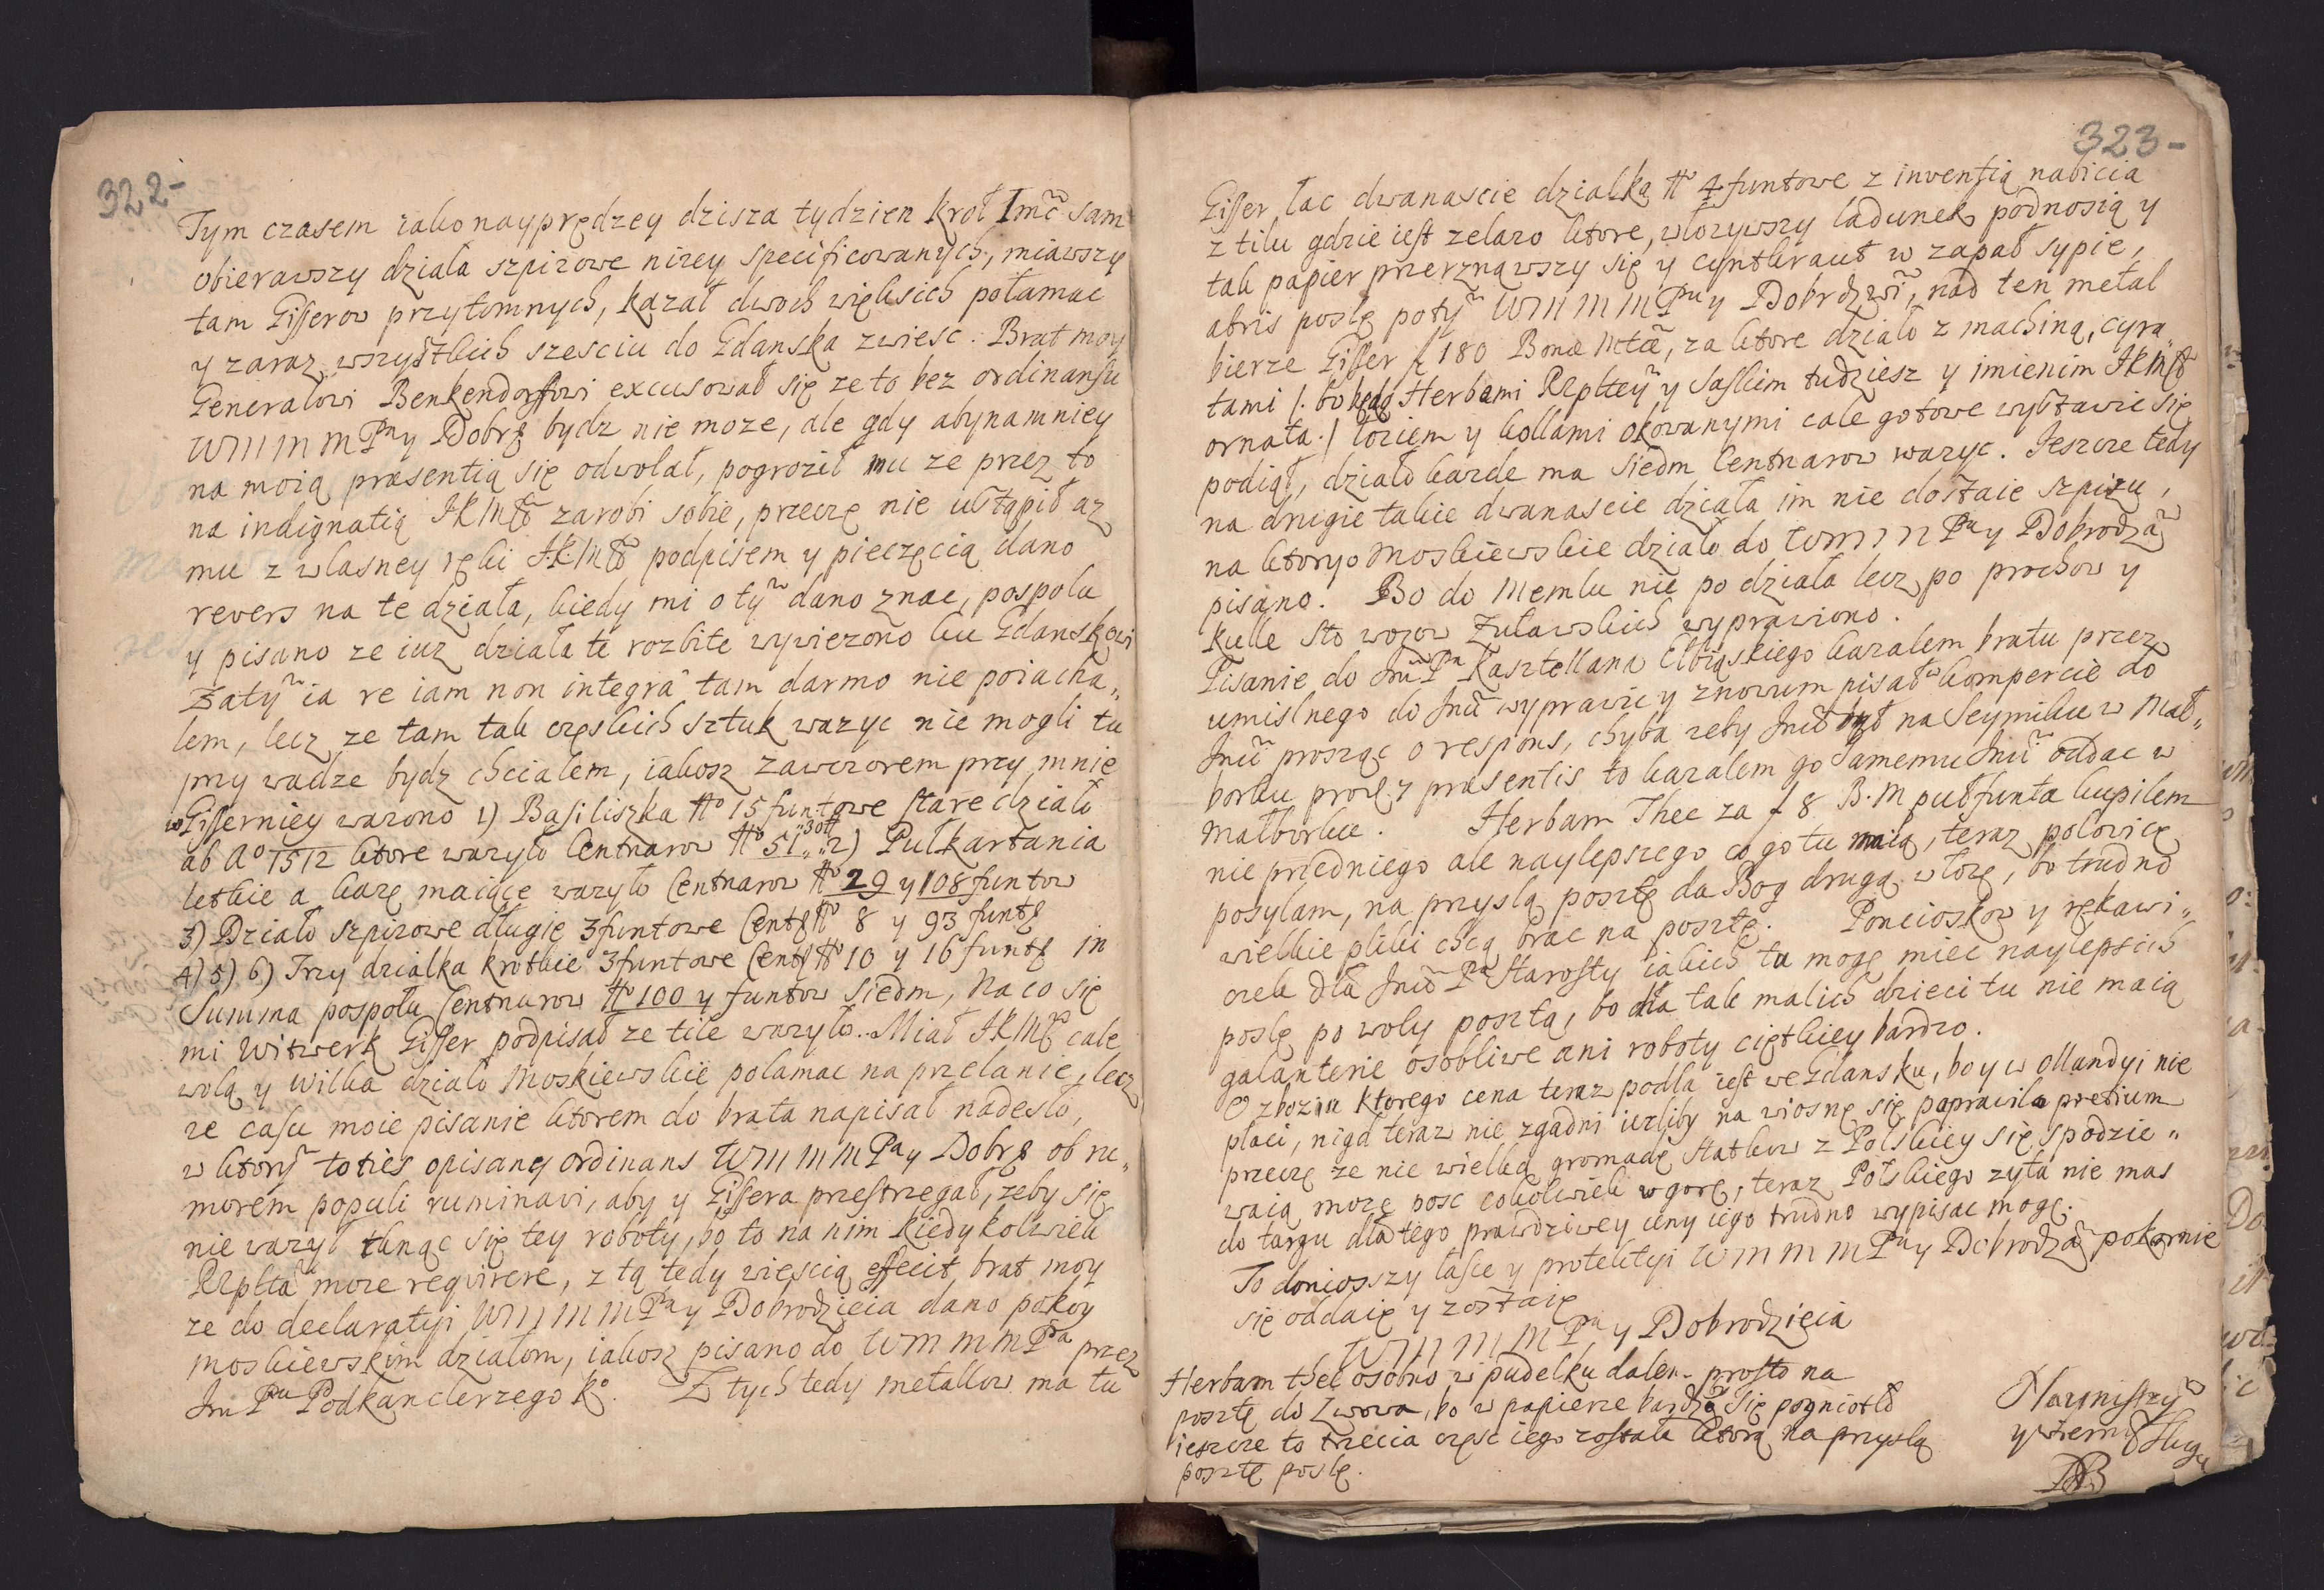 322-
Tym czasem iako nayprędzey dzisza tydzien krol Jmc̃ sam
obierawszy dziala szpizowe nizey specificowanych, miawszy
tam Gisserow przytomnych, kazał dwoch większich połamac
y zaraz wszystkich szesciu do Gdanska zwiesc. Brat moy
Generałowi Benkendorffowi excusował się ze to bez ordinansu
WMMMPna y Dobrz bydz nie moze, ale gdy abynamniey
na moią præsentią się odwołał, pogroził mu ze przez to
na indignatią JKMsc zarobi sobie, przecię nie ustąpił az
mu z własney ręki JKMsc podpisem y pieczęcią dano
revers na te działa, kiedy mi o tym dano znac, pospolu
y pisano ze iuz działa te rozbite wywiezono ku Gdanskowi
Zatym ia re iam non integra tam darmo nie poiacha„
lem, lecz ze tam tak cięskich sztuk wazyc nie mogli tu
przy wadze bydz chciałem, iakosz zawczorem przy mnie
w Gisserniey wazono 1) Basiliszka No 15 funtowe stare działo
ab Ao 1512 ktore wazyło Centnarow No 51„30 2) Pulkartania
letkie a karę maiące wazyło Centnarow No 29 y 108 funtow
3) Działo szpizowe długie 3funtowe Cent No 8 y 93 funt
4) 5) 6) Trzy dzialka krotkie 3funtowe Cent No 10 y 16 funt in
Summa pospołu Centnarow No 100 y funtow siedm, na co się
mi Witwerk Gisser podpisał ze tile wazyło. Miał JKMsc cale
wolą y Wilka działo Moskiewskie połamac na przelanie, lecz
ze casu moie pisanie ktorem do brata napisał nadesło,
w ktorym toties opisany ordinans WMMMPna y Dobrz ob ru„
morem populi ruminavi, aby y Gissera przestrzegał, zeby się
nie wazył tknąc się tey roboty, bo to na nim kiedykolwiek
Rzplta moze requirere, z tą tedy wiescią effecit brat moy
ze do declaratyi WMMMPna y Dobrodzieia dano pokoy
moskiewskim działom, iakosz pisano do WMMMPna przez
Jm Pna Podkanclerzego Ko. Z tych tedy metallow ma tu
323-
Gisser lac dwanascie dzialka No 4 funtowe z inventią nabicia
z tilu gdzie iest zelazo ktore, włozywszy ladunek podnosią y
tak papier przerznąwszy się y cyntkraut w zapał sypie,
abris poslę potym WMMMPnu y Dobrdzwi, nad ten metal
bierze Gisser f 180 Bonæ Mtæ, za ktore działo z machiną, cyra„
tami /: bo będą Herbami Rzpltey y Saskim tudziesz y imieniem JKMsc
ornata :/ łoziem y kollami okowanymi cale gotowe wystawic się
podiął, działo karde ma siedm Centnarow wazyc. Jeszcze tedy
na drugie takie dwanascie działa im nie dostaie szpizu,
na ktoryo Moskiewskie działo do WMMMPna y Dobrodza
pisano. Bo do Memlu nie po działa lecz po prochow y
kulle sto wozow Zuławskich wyprawiono.
Pisanie do Jm Pna Kasztellana Elbiąskiego kazałem bratu przez
umislnego do Jm wyprawic y znowum pisał w kompercie do
Jm prosząc o respons, chyba zeby Jm był na Seymiku w Mal„
borku proę z præsentis to kazalem go samemu Jm oddac w
Malborku. Herbam Thee za f 8 B.M pułfunta kupilem
nie przedniego ale naylepszego co go tu maią, teraz polowicę
posylam, na przyslą posztę da Bog drugą włozę, bo trudno
wielkie pliki chcą brac na posztę. Poncioskow y rękawi„
czek dla Jm Pna Starosty iakich tu mogę miec naylepsich
poslę po woly posztą, bo dla tak malich dzieci tu nie maią
galanterie osobliwe ani roboty cięnkiey bardzo.
O zboziu ktorego cena teraz podla iest we Gdansku, bo y w Ollandyi nie
płaci, nigd teraz nie zgadni iezliby na wiosnę się poprawila pretium
przecię ze nie wielką gromadę statkow z Polskiey się spodzie„
waią moze posc cokolwiek w gorę, teraz Polskiego zyta nie mas
do targu dla tego prawdziwey ceny iego trudno wypisac mogę.
To doniosszy lasce y protektyi WMMMPna y Dobrodza pokornie
się oddaię y zostaię
WMMMPna y Dobrodzieia
Herbam thee osobno w pudelku dalem prosto na
posztę do Lwowa, bo w papierze bardzo się pogniotło
ieszcze to trzecia częsc iego została ktorą na przyslą
posztę poslę.
Naynisszym
y wiernym Sługą